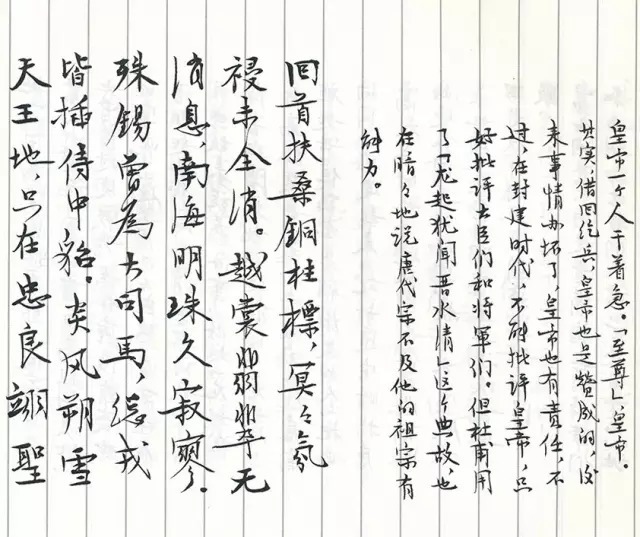 皇帝一个人干着急。「至尊」皇帝。
其实,借回纥兵,皇帝也是赞成的,后
来事情办坏了,皇帝也有责任,不
过,在封建时代,不能批评皇帝,只
好批评大臣们和将軍们。但杜甫用
了「龙起犹闻晋水清」这个典故,也
在暗々地说唐代宗不及他的祖宗有
能力。
回首扶桑銅柱標,冥々氛
祲未全消。越裳翡翠无
消息,南海明珠久寂寥。
殊錫曾為大司馬,總戎
皆插侍中貂。炎风朔雪
天王地,只在忠良翊聖